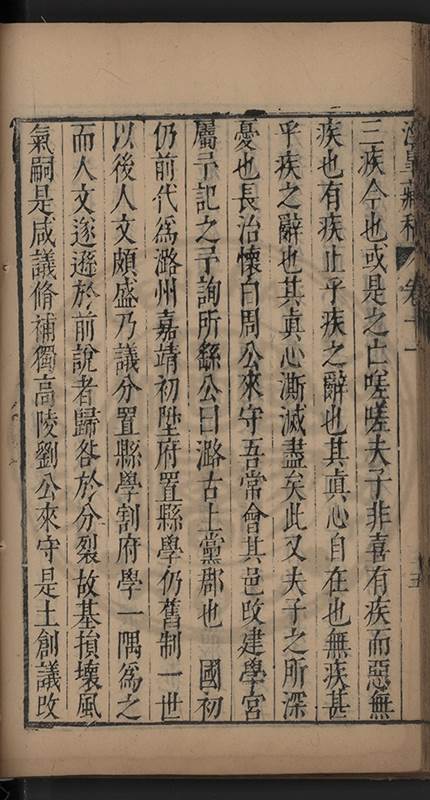 藏稿 卷十一
五
三疾今也或是之亡嗟嗟夫子非喜有疾而惡無
疾也有疾止乎疾之辭也其真心自在也無疾甚
乎疾之辭也其真心澌滅盡矣此又夫子之所深
憂也長治懷白周公來守吾常會其邑改建學宮
屬予記之予詢所繇公曰潞古上黨郡也　國初
仍前代為潞州嘉靖初陞府置縣學仍舊制一世
以後人文頗盛乃議分置縣學割府學一隅為之
而人文遂遜於前說者歸咎於分裂故基損壞風
氣嗣是咸議脩補獨高陵劉公來守是土創議改